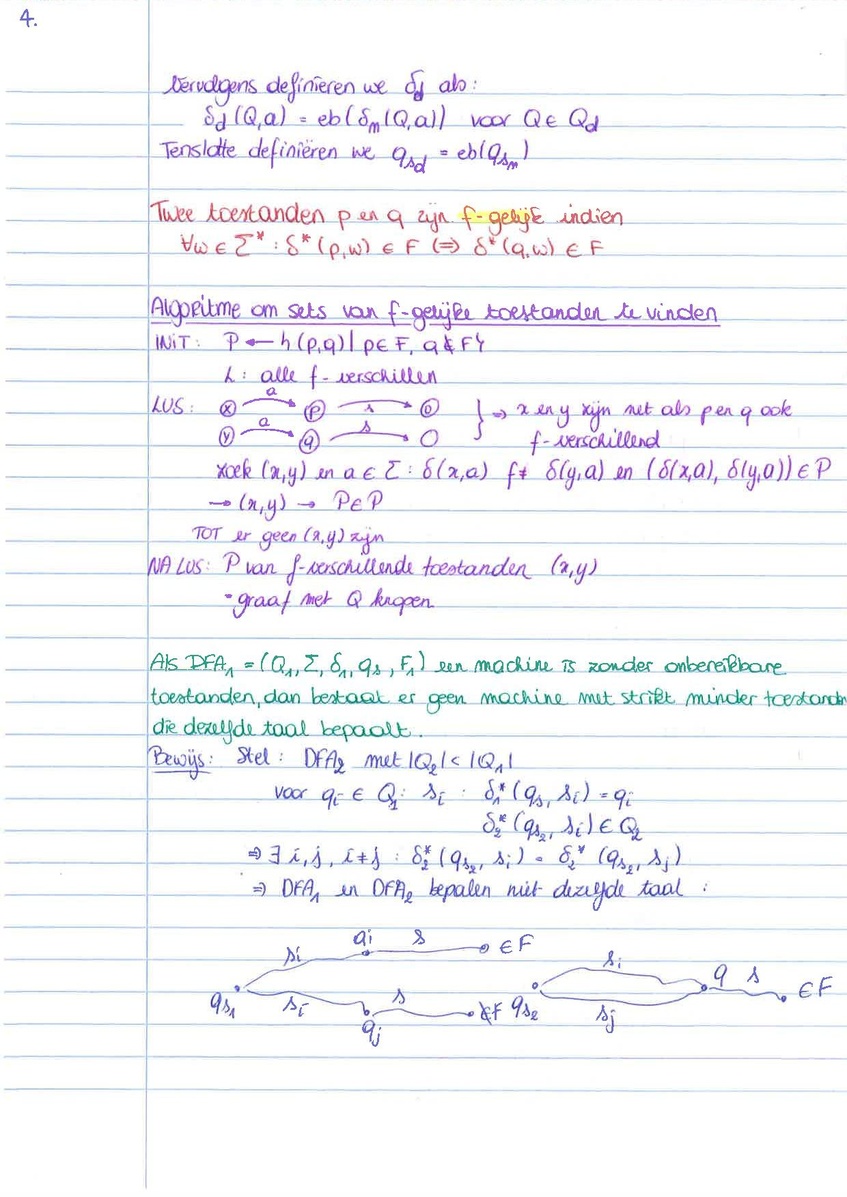 4.
Vervolgens definieren we δd als:
δd (Q,a) = eb(δm(Q,a)) voor Q ∈ Qd
Tenslotte definiëren we qsd = eb(qsm)
Twee toestanden p en q zijn f-gelijk indien
∀w ∈ Σ* : δ*(p,w) ∈ F ⇔ δ*(q,w) ∈ F
Algoritme om sets van f-gelijke toestanden te vinden
INIT: P ← {(p,q) | p ∈ F, q ∉ F}
↳: alle f-verschillen
LUS: x a p s o
y a q s
} ⇒ x en y zijn net als p en q ook
f-verschillend
zoek (x,y) en a ∈ Σ : δ(x,a) f≠ δ(y,a) en (δ(x,a), δ(y,a)) ∈ P
→ (x,y) → P ∈ P
TOT er geen (x,y) zijn
NA LUS: P van f-verschillende toestanden (x,y)
- graaf met Q knopen
Als DFA1 = (Q1, Σ, δ1, qs, F1) een machine is zonder onbereikbare
toestanden, dan bestaat er geen machine met strikt minder toestanden
die dezelfde taal bepaalt.
Bewijs: Stel: DFA2 met |Q2| < |Q1|
voor qi ∈ Q1: si : δ1*(qs, si) = qi
δ2*(qs2, si) ∈ Q2
⇒ ∃ i,j, i≠j : δ2*(qs2, si) = δ2*(qs2, sj)
⇒ DFA1 en DFA2 bepalen niet dezelfde taal :
qs1 si qi s ∈ F
si qj s ∉ F
qs2 si q s ∈ F
sj